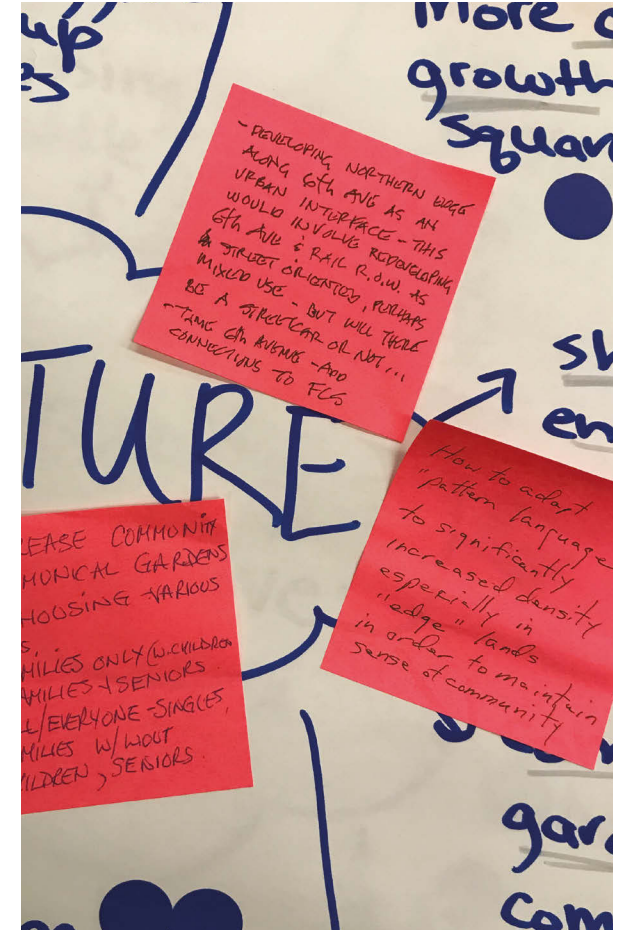 up
es
More
growth
Squar
- DEVELOPING NORTHERN EDGE
ALONG 6th AVE AS AN
URBAN INTERFACE - THIS
WOULD INVOLVE REDEVELOPING
6th AVE & RAIL R.O.W. AS
STREET ORIENTED, PERHAPS
MIXED USE - BUT WILL THERE
BE A STREETCAR OR NOT...
- TAME 6th AVENUE - ADD
CONNECTIONS TO FCS
TURE
sh
en
How to adapt
"pattern language
to significantly
increased density
especially in
"edge" lands
in order to maintain
sense of community
EASE COMMUNIT
MUNICAL GARDENS
HOUSING - VARIOUS
S.
MILIES ONLY (W. CHILDREN
AMILIES + SENIORS
L/EVERYONE - SINGLES,
MILIES W/WOUT
ILDREN, SENIORS
gar
com